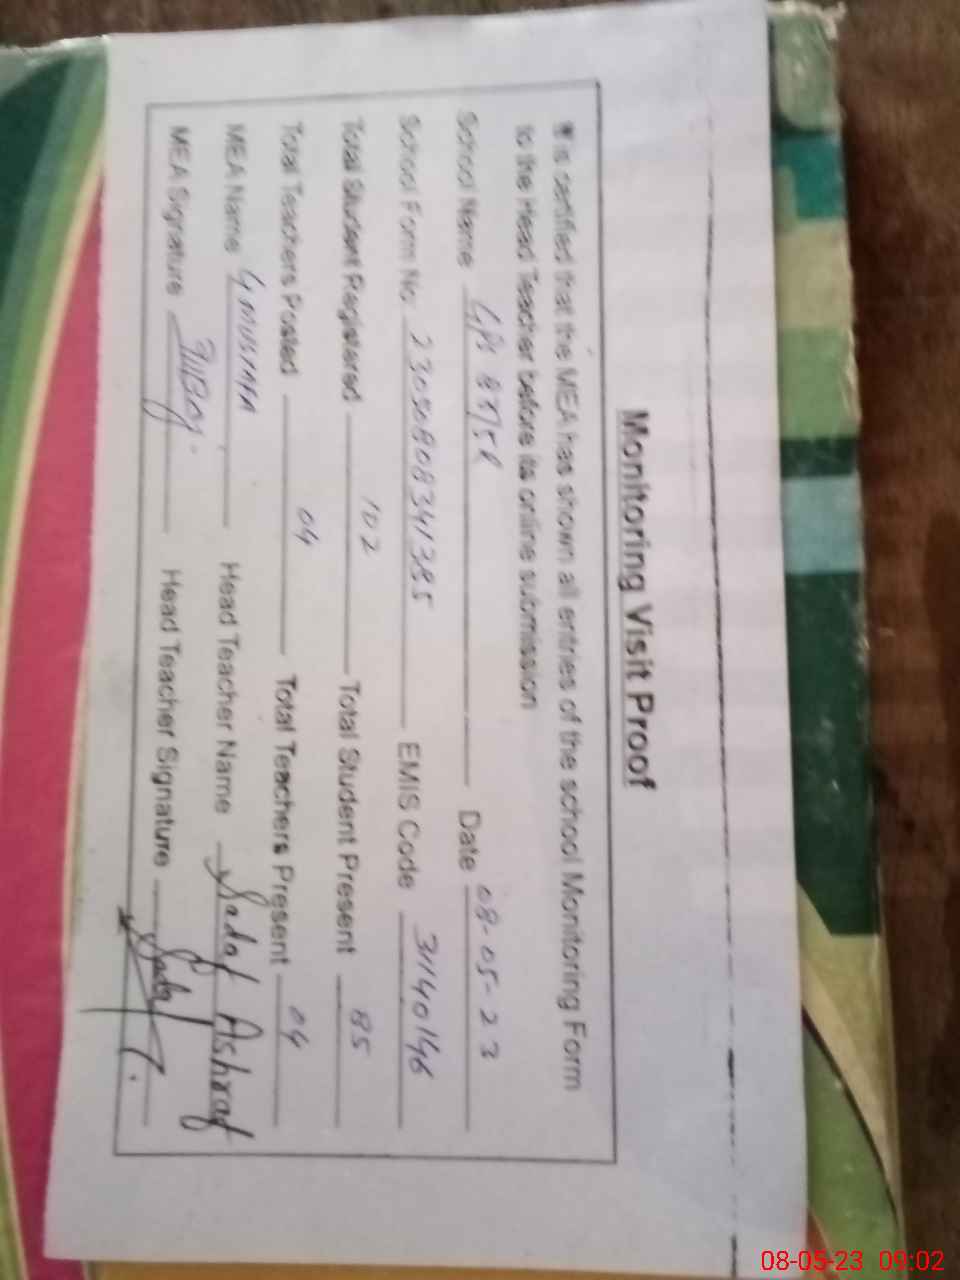 Monitoring Visit Proof
It is certified that the MEA has shown all entries of the school Monitoring Form
to the Head Teacher before its online submission
School Name GPS 88/5R Date 08-05-23
School Form No 23050808341385 EMIS Code 31140146
Total Student Registered 102 Total Student Present 85
Total Teachers Posted 04 Total Teachers Present 04
MEA Name G MUSTAFA Head Teacher Name Sadaf Ashraf
MEA Signature Head Teacher Signature Sadaf
08-05-23 09:02